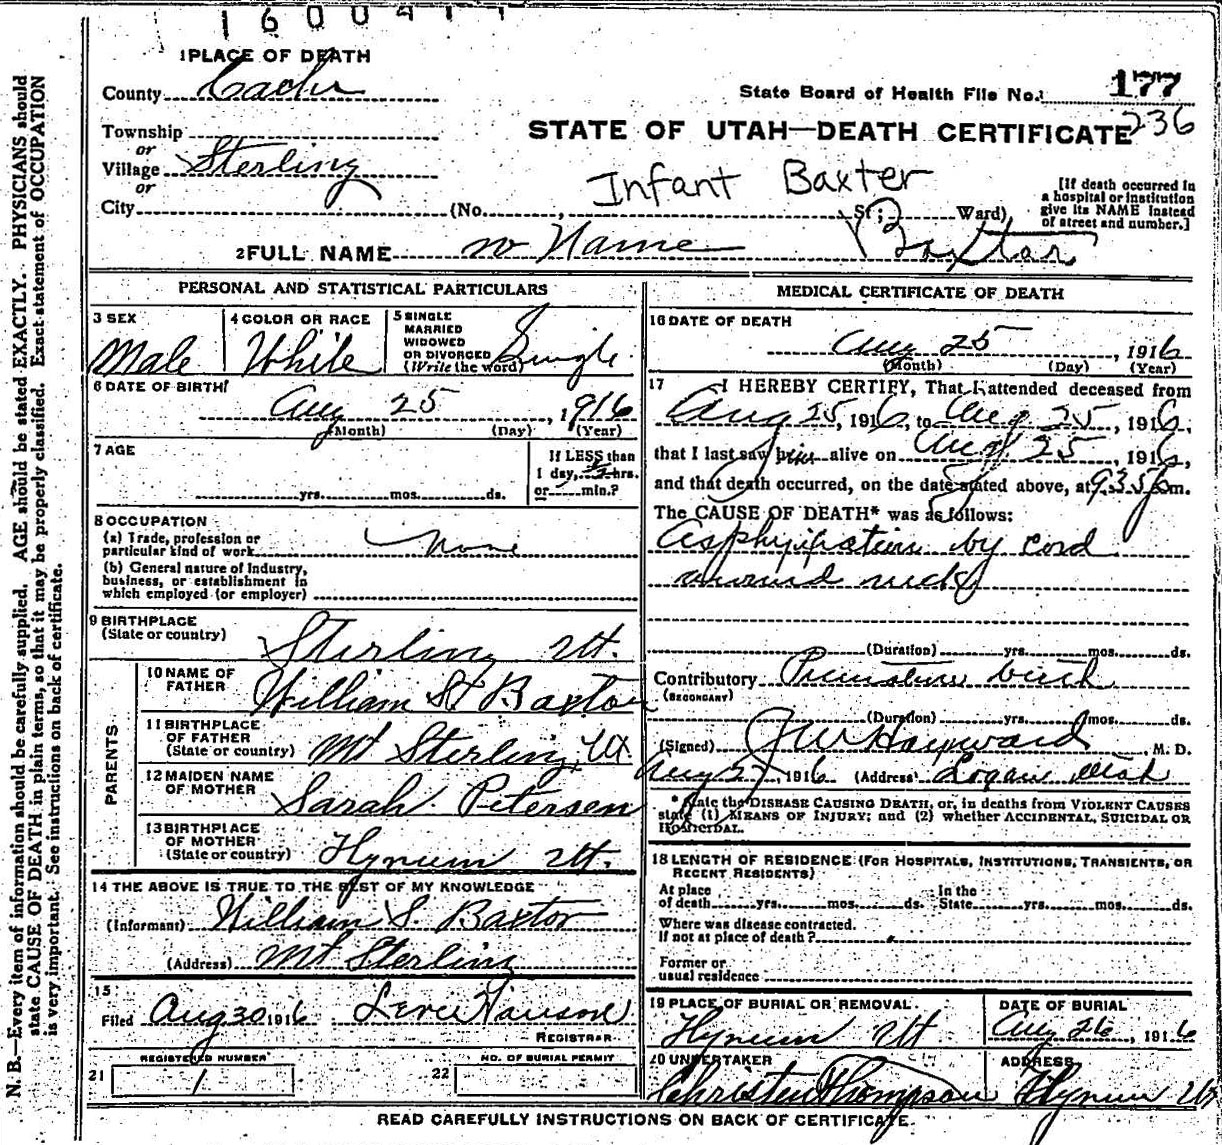 160041
1 PLACE OF DEATH
County Cache
State Board of Health File No. 177
236
Township
or
Village Sterling
or
City
STATE OF UTAH—DEATH CERTIFICATE
Infant Baxter
(No. , St; Ward)
[If death occurred in
a hospital or institution
give its NAME instead
of street and number.]
2 FULL NAME no Name Baxter
PERSONAL AND STATISTICAL PARTICULARS
3 SEX
Male
4 COLOR OR RACE
White
5 SINGLE
MARRIED
WIDOWED
OR DIVORCED
(Write the word) Single
6 DATE OF BIRTH
Aug 25, 1916
(Month) (Day) (Year)
7 AGE
yrs. mos. ds.
If LESS than
1 day, ½ hrs.
or min.?
8 OCCUPATION
(a) Trade, profession or
particular kind of work None
(b) General nature of Industry,
business, or establishment in
which employed (or employer)
9 BIRTHPLACE
(State or country) Sterling Ut.
PARENTS
10 NAME OF
FATHER William S Baxtor
11 BIRTHPLACE
OF FATHER
(State or country) Mt Sterling, Ut
12 MAIDEN NAME
OF MOTHER Sarah Petersen
13 BIRTHPLACE
OF MOTHER
(State or country) Hyrum Ut.
14 THE ABOVE IS TRUE TO THE BEST OF MY KNOWLEDGE
(Informant) William S. Baxtor
(Address) Mt Sterling
15
Filed Aug 30 1916
REGISTRAR
REGISTERED NUMBER
21 1
NO. OF BURIAL PERMIT
22
MEDICAL CERTIFICATE OF DEATH
16 DATE OF DEATH
Aug 25, 1916
(Month) (Day) (Year)
17 I HEREBY CERTIFY, That I attended deceased from
Aug 25, 1916, to Aug 25, 1916,
that I last saw him alive on Aug 25, 1916,
and that death occurred, on the date stated above, at 9.35 p m.
The CAUSE OF DEATH* was as follows:
Asphyxiation by cord
around neck
(Duration) yrs. mos. ds.
Contributory Premature birth
(SECONDARY)
(Duration) yrs. mos. ds.
(Signed) J W Hayward, M. D.
Aug 27, 1916 (Address) Logan Utah
* State the DISEASE CAUSING DEATH, or, in deaths from VIOLENT CAUSES
state (1) MEANS OF INJURY; and (2) whether ACCIDENTAL, SUICIDAL OR
HOMICIDAL.
18 LENGTH OF RESIDENCE (FOR HOSPITALS, INSTITUTIONS, TRANSIENTS, OR
RECENT RESIDENTS)
At place
of death yrs. mos. ds.
In the
State yrs. mos. ds.
Where was disease contracted.
If not at place of death?
Former or
usual residence
19 PLACE OF BURIAL OR REMOVAL
Hyrum Ut
DATE OF BURIAL
Aug 26, 1916
20 UNDERTAKER
Christen Thompson
ADDRESS
Hyrum Ut
READ CAREFULLY INSTRUCTIONS ON BACK OF CERTIFICATE.
N. B.—Every item of information should be carefully supplied. AGE should be stated EXACTLY. PHYSICIANS should
state CAUSE OF DEATH in plain terms, so that it may be properly classified. Exact statement of OCCUPATION
is very important. See instructions on back of certificate.